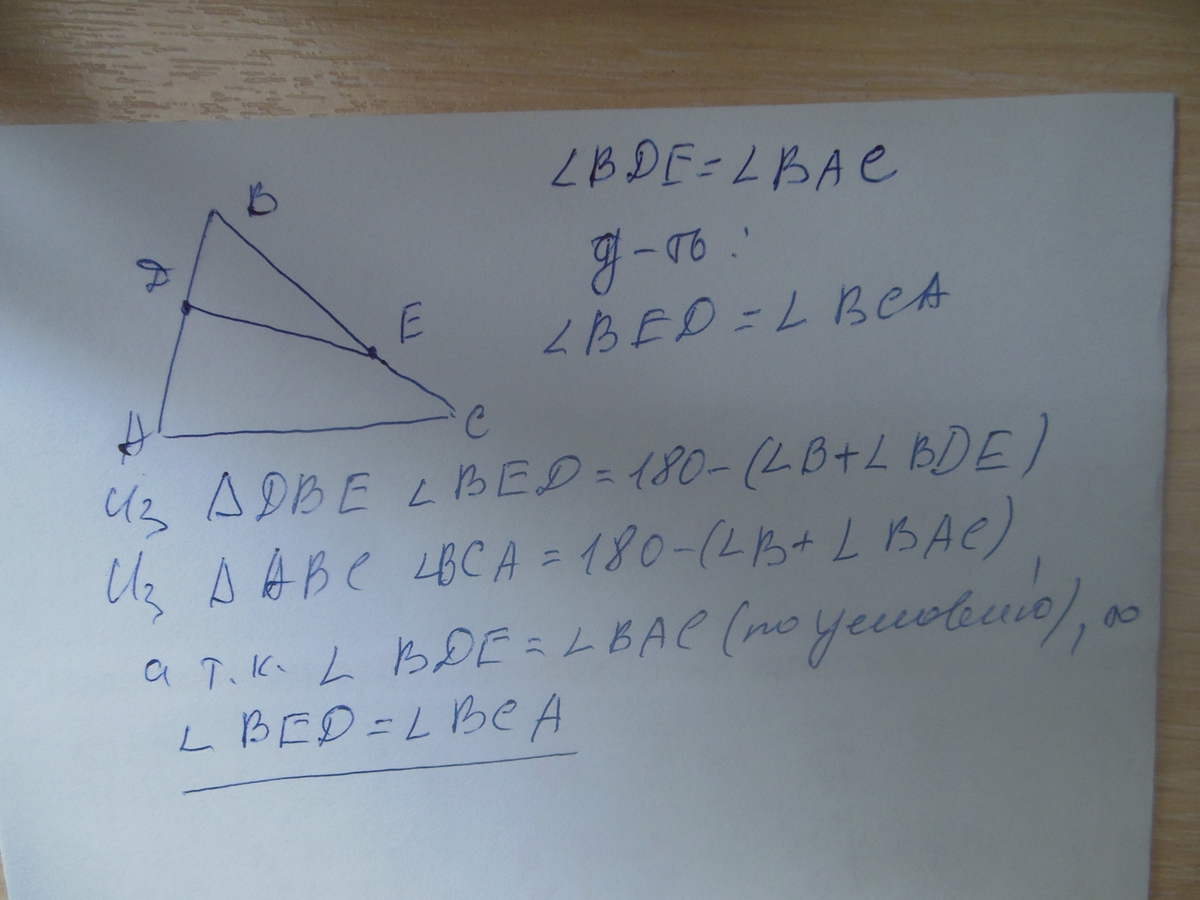 ∠BDE=∠BAC
д-ть:
∠BED=∠BCA
B
D
E
A
C
Из ΔDBE ∠BED=180-(∠B+∠BDE)
Из ΔABC ∠BCA=180-(∠B+∠BAC),
а т.к. ∠BDE=∠BAC (по условию), то
∠BED=∠BCA